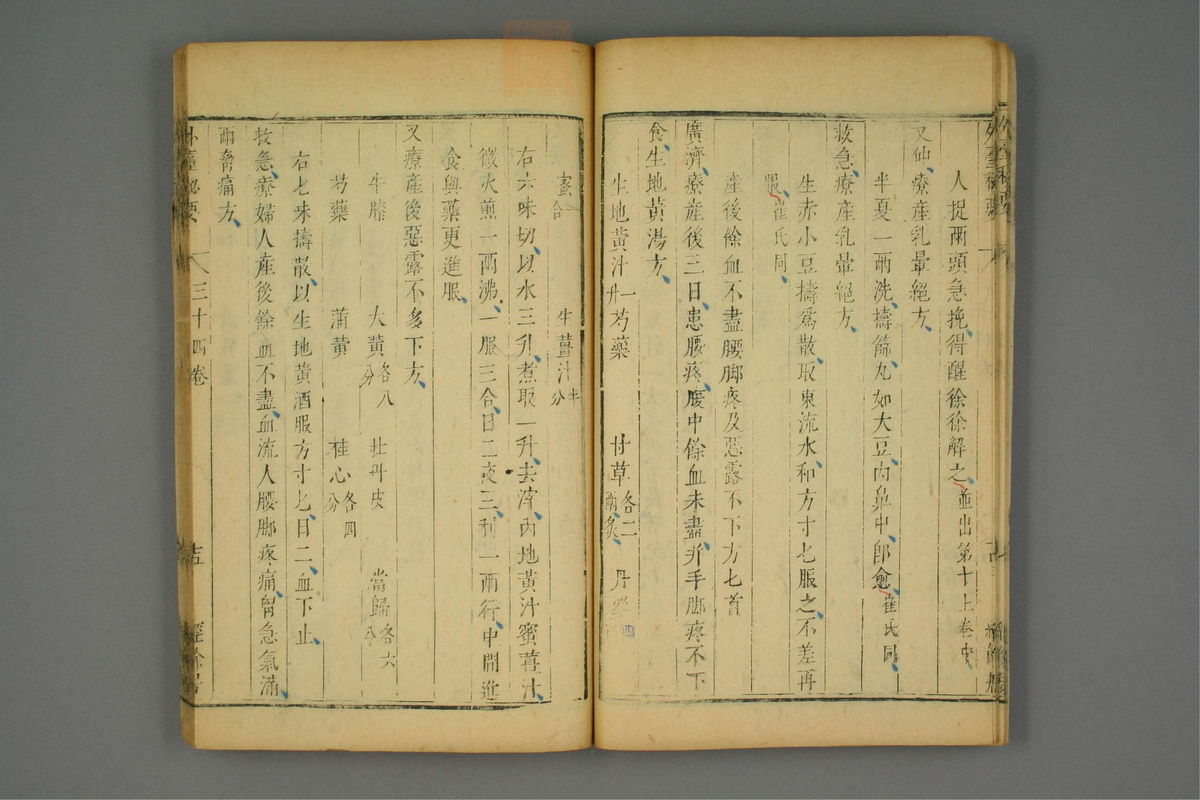 外臺秘要
人捉兩頭急挽得醒徐徐解之並出第十上卷中
又仙療產乳暈絕方
半夏一兩洗擣篩丸如大豆內鼻中即愈崔氏同
救急療產乳暈絕方
生赤小豆擣爲散取東流水和方寸匕服之不差再
服崔氏同
產後餘血不盡腰脚疼及惡露不下方七首
廣濟療產後三日患腰疼腹中餘血未盡并手脚疼不下
食生地黃湯方
生地黃汁一升 芍藥 甘草各二兩炙 丹參四
蜜一合 生薑汁半分
右六味切以水三升煮取一升去滓內地黃汁蜜薑汁
微火煎一兩沸一服三合日二夜三利一兩行中間進
食與藥更進服
又療產後惡露不多下方
牛膝 大黃各八分 牡丹皮 當歸各六分
芍藥 蒲黃 桂心各四分
右七味擣散以生地黃酒服方寸匕日二血下止
救急療婦人產後餘血不盡血流入腰脚疼痛胷急氣滿
兩脅痛方
外臺秘要 三十四卷 經餘居